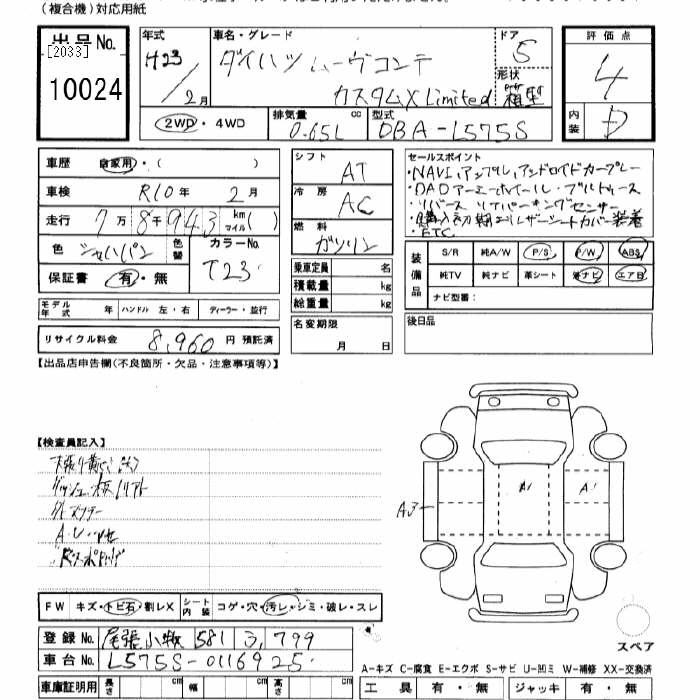 (複合機)対応用紙
出品No.
[2033]
10024
年式
H23/2月
車名・グレード
ダイハツ ムーヴコンテ
カスタムX Limited
ドア
5
形状
箱型
評価点
4
内装
D
2WD・4WD
排気量
0.65L
cc
型式
DBA-L575S
車歴 自家用・( )
車検 R10年 2月
走行 7万8千943 km マイル( )
色
シャンパン
色替
カラーNo.
T23
保証書 有・無
モデル年式 年 ハンドル 左・右 ディーラー・並行
リサイクル料金 8,960 円 預託済
シフト AT
冷房 AC
燃料 ガソリン
乗車定員 名
積載量 kg
総重量 kg
名変期限
月 日
セールスポイント
・NAVI、アップル、アンドロイドカープレー
・DADアーエーホイール・ブルトゥース
・リバース リアパーキングセンサー
・購入初期よりレザーシートカバー装着
・ETC
装備品
S/R 純A/W P/S P/W ABS
純TV 純ナビ 革シート ナビ エアB
ナビ型番:
後日品
【出品店申告欄(不良箇所・欠品・注意事項等)】
【検査員記入】
A1
A1
A3
FW キズ・トビ石・割レX シート内装 コゲ・穴・汚レ・シミ・破レ・スレ
登録No. 尾張小牧 581 う 799
車台No. L575S-0116925
車庫証明用 長さ cm 幅 cm 高さ cm
スペア
A-キズ C-腐食 E-エクボ S-サビ U-凹ミ W-補修 XX-交換済
工具 有・無 ジャッキ 有・無